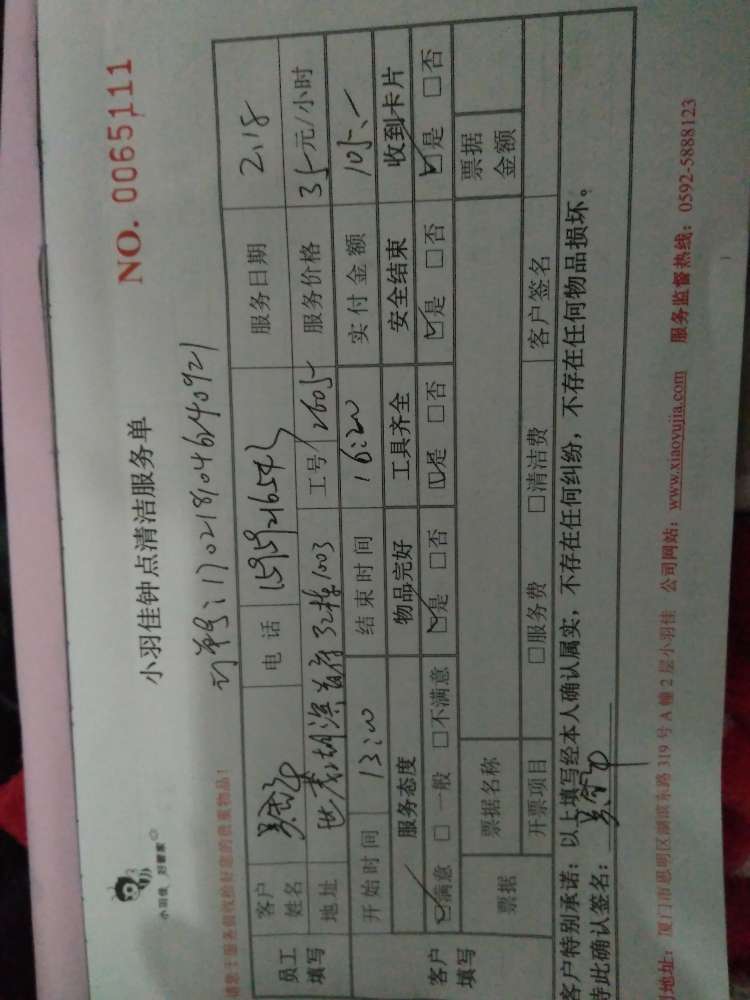 小羽佳 好管家
小羽佳钟点清洁服务单
NO. 0065111
订单号:1702181046240921
客户姓名 电话 15959216543 服务日期 2.18
员工填写
地址 世茂湖滨首府 32栋1003 工号 12605 服务价格 35元/小时
开始时间 13:20 结束时间 16:20 实付金额 105.-
客户填写
服务态度 物品完好 工具齐全 安全结束 收到卡片
☑满意 □一般 □不满意 ☑是 □否 ☑是 □否 ☑是 □否 ☑是 □否
票据 票据名称 票据金额
开票项目 □服务费 □清洁费 客户签名
客户特别承诺:以上填写经本人确认属实,不存在任何纠纷,不存在任何物品损坏。
特此确认签名:
地址:厦门市思明区湖滨东路 319 号 A 幢 2 层小羽佳 公司网站:www.xiaoyujia.com 服务监督热线:0592-5888123